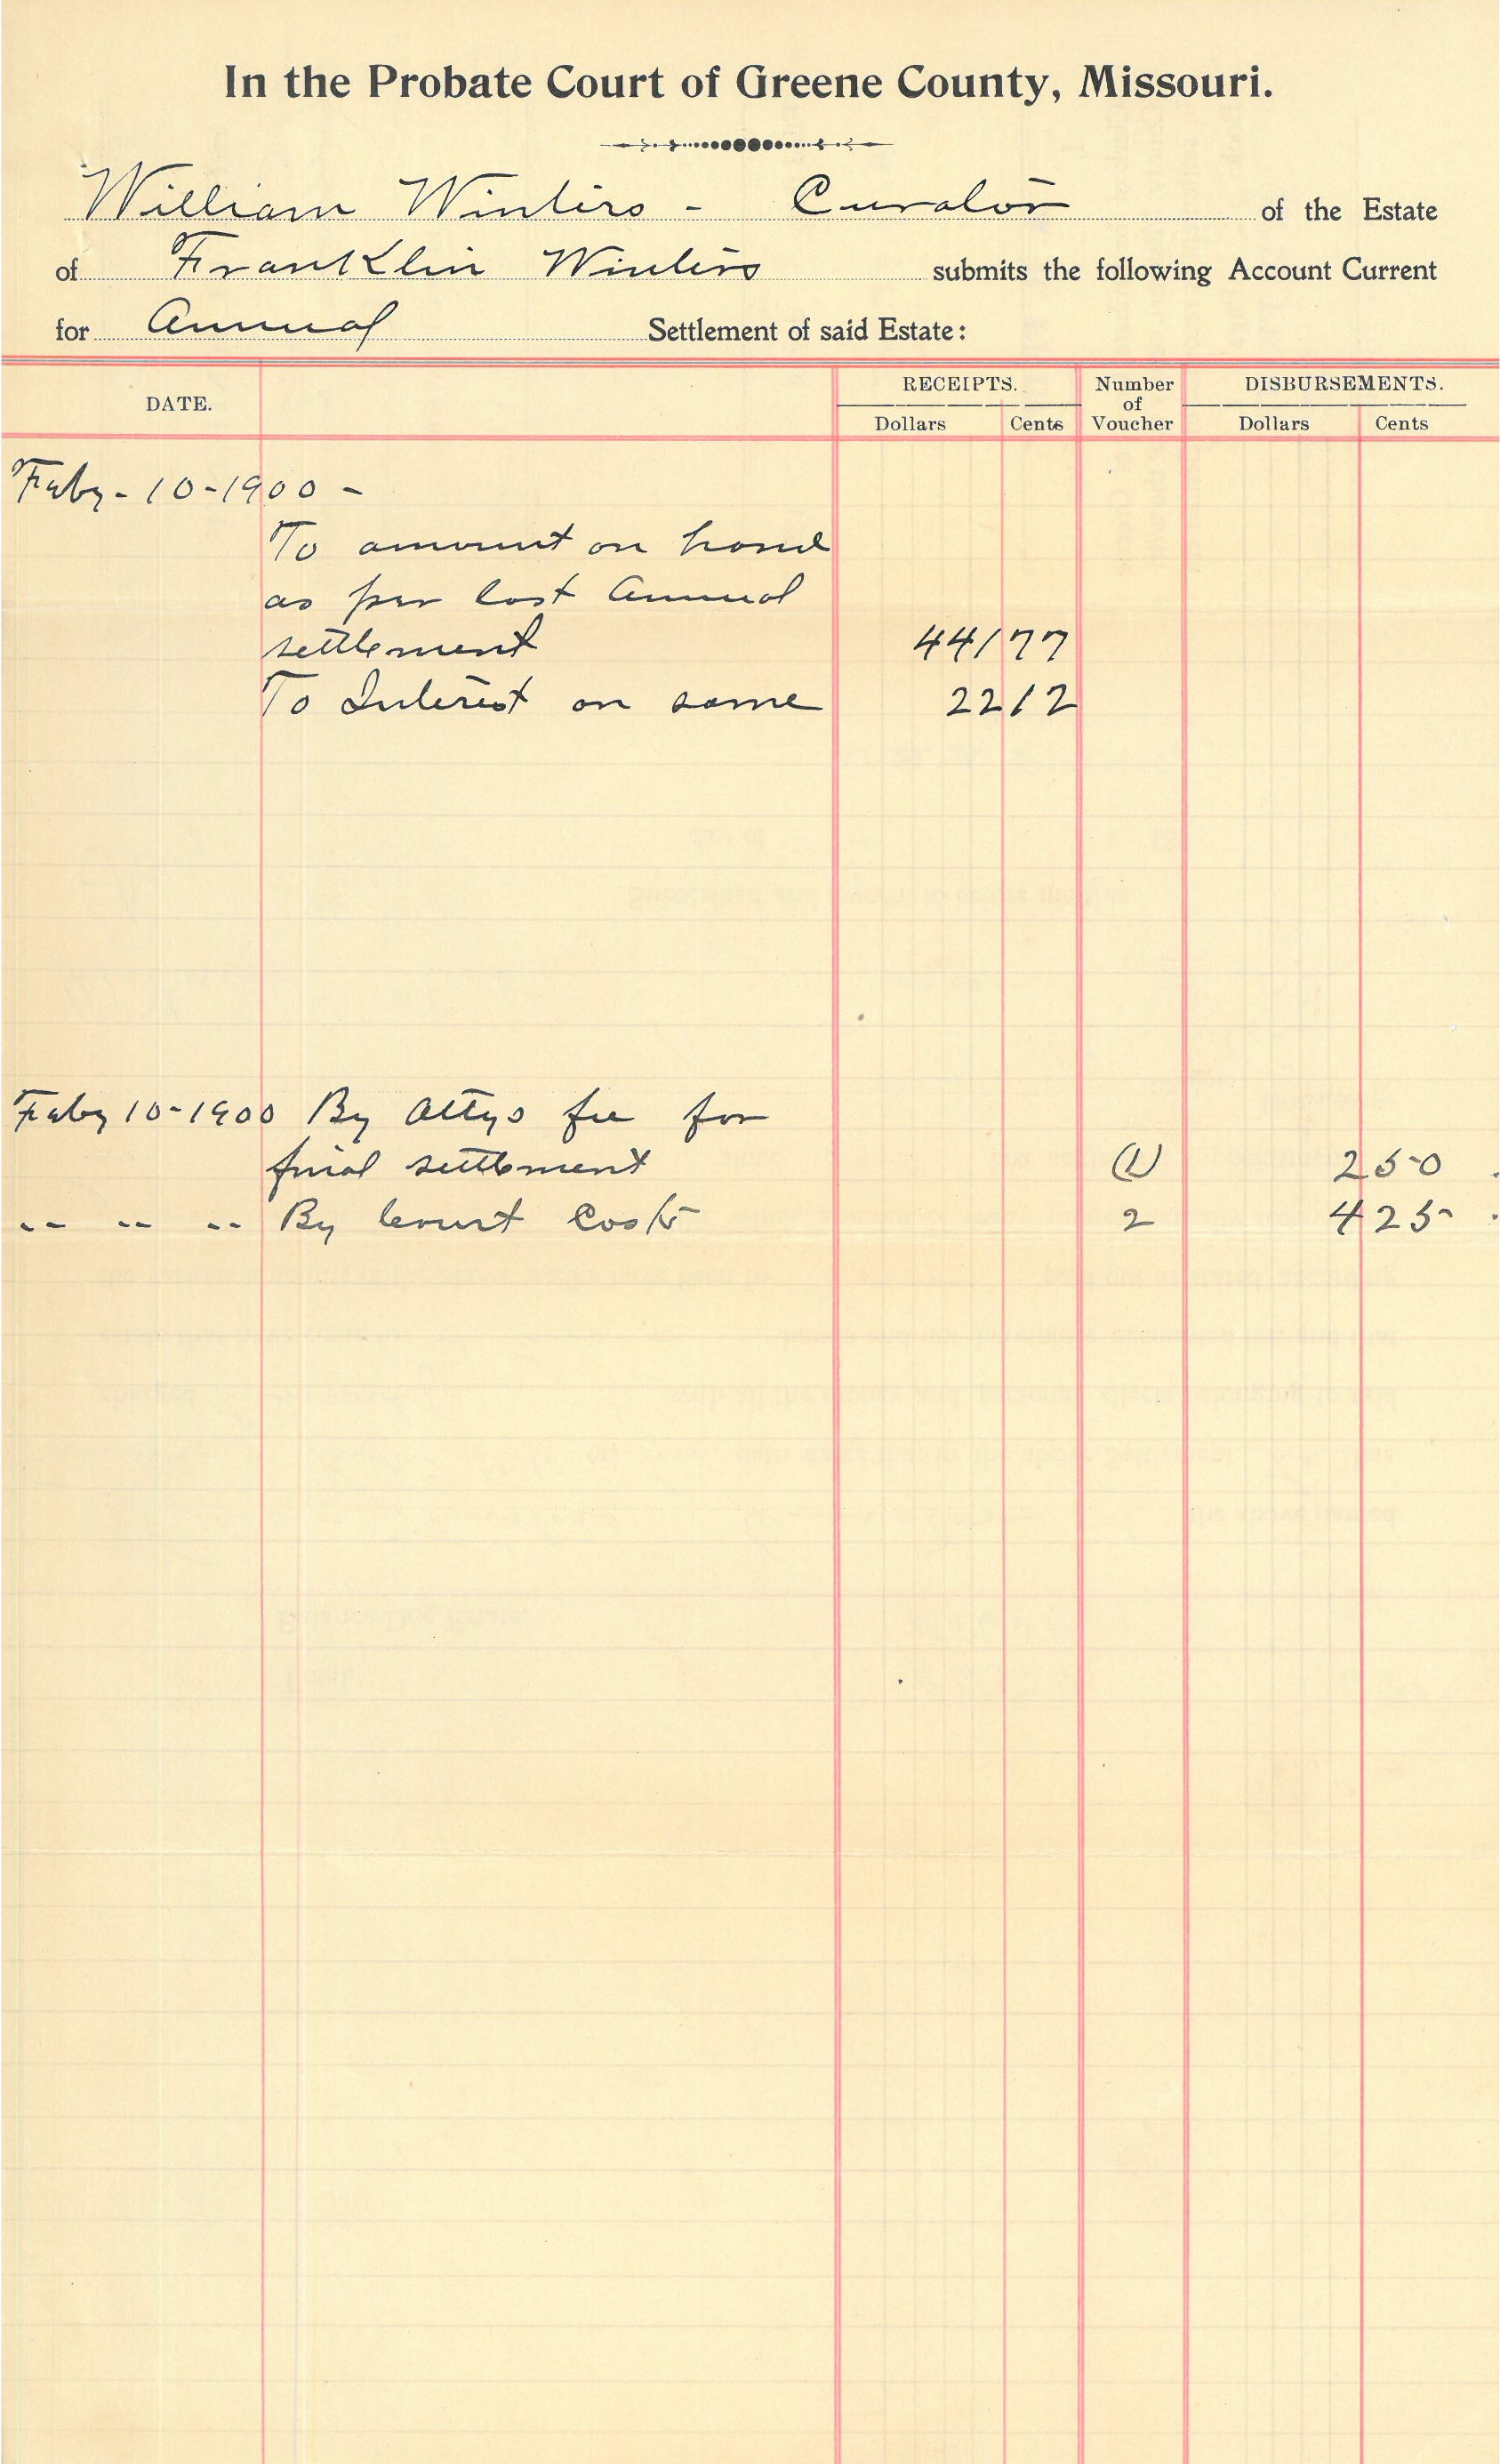 In the Probate Court of Greene County, Missouri.
William Winters - Curator of the Estate
of Franklin Winters submits the following Account Current
for Annual Settlement of said Estate:
DATE. RECEIPTS. Dollars Cents Number of Voucher DISBURSEMENTS. Dollars Cents
Feby - 10 - 1900 -
To amount on hand
as per last Annual
settlement 441 77
To Interest on same 22 12
Feby 10 - 1900 By Attys fee for
final settlement (1) 2 50
" " " By Court Costs 2 4 25